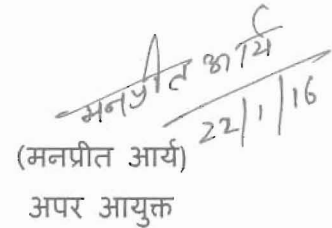 मनप्रीत आर्य
22/1/16
(मनप्रीत आर्य)
अपर आयुक्त